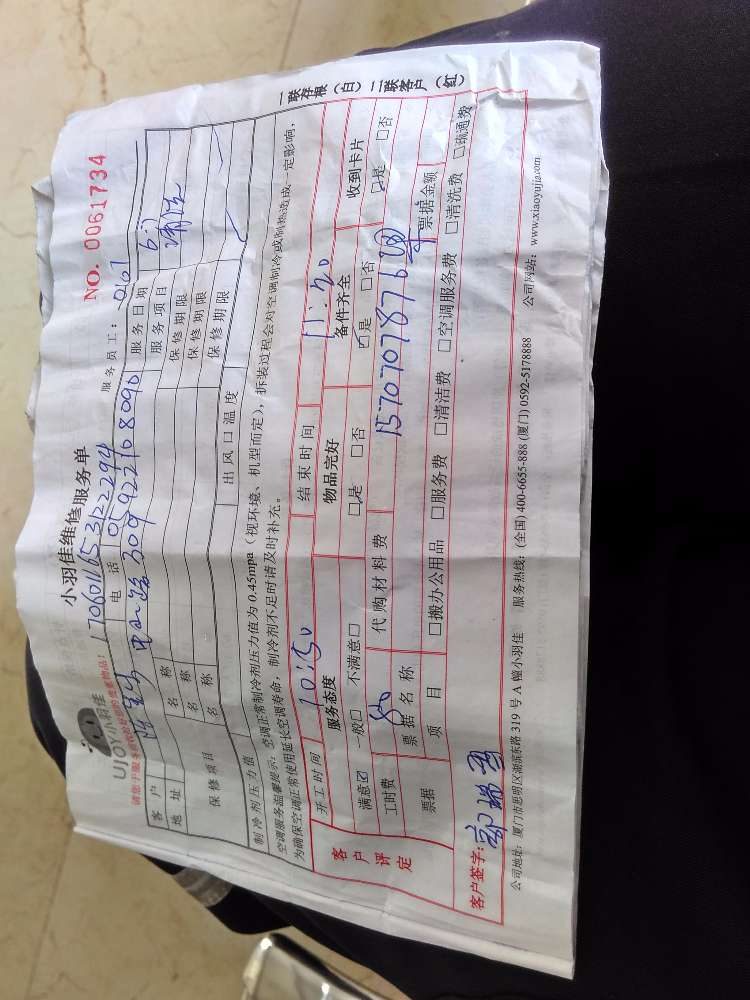 小羽佳维修服务单
NO. 0061734
UJOY小羽佳
17060116531222294
服务员工: 0161
客户 电话 服务日期 6.7
地址 309 服务项目
名称 保修期限
保修项目 名称 保修期限
名称 保修期限
制冷剂压力值 出风口温度
空调服务温馨提示: 空调正常制冷剂压力值为 0.45mpa (视环境、机型而定), 拆装过程会对空调制冷或制热造成一定影响,
为确保空调正常使用延长空调寿命, 制冷剂不足时请及时补充。
客户评定
开工时间 10:50 结束时间 11:20
服务态度 物品完好 备件齐全 收到卡片
满意☑ 一般□ 不满意□ □是 □否 ☑是 □否 □是 □否
工时费 80 代购材料费 15707078762
票据 票据名称 票据金额
项目 □搬办公用品 □服务费 □清洁费 □空调服务费 □清洗费 □疏通费
客户签字:
公司地址: 厦门市思明区湖滨东路 319 号 A 幢小羽佳 服务热线: (全国) 400-6655-888 (厦门) 0592-5178888 公司网站: www.xiaoyujia.com
一联存根 (白) 二联客户 (红)